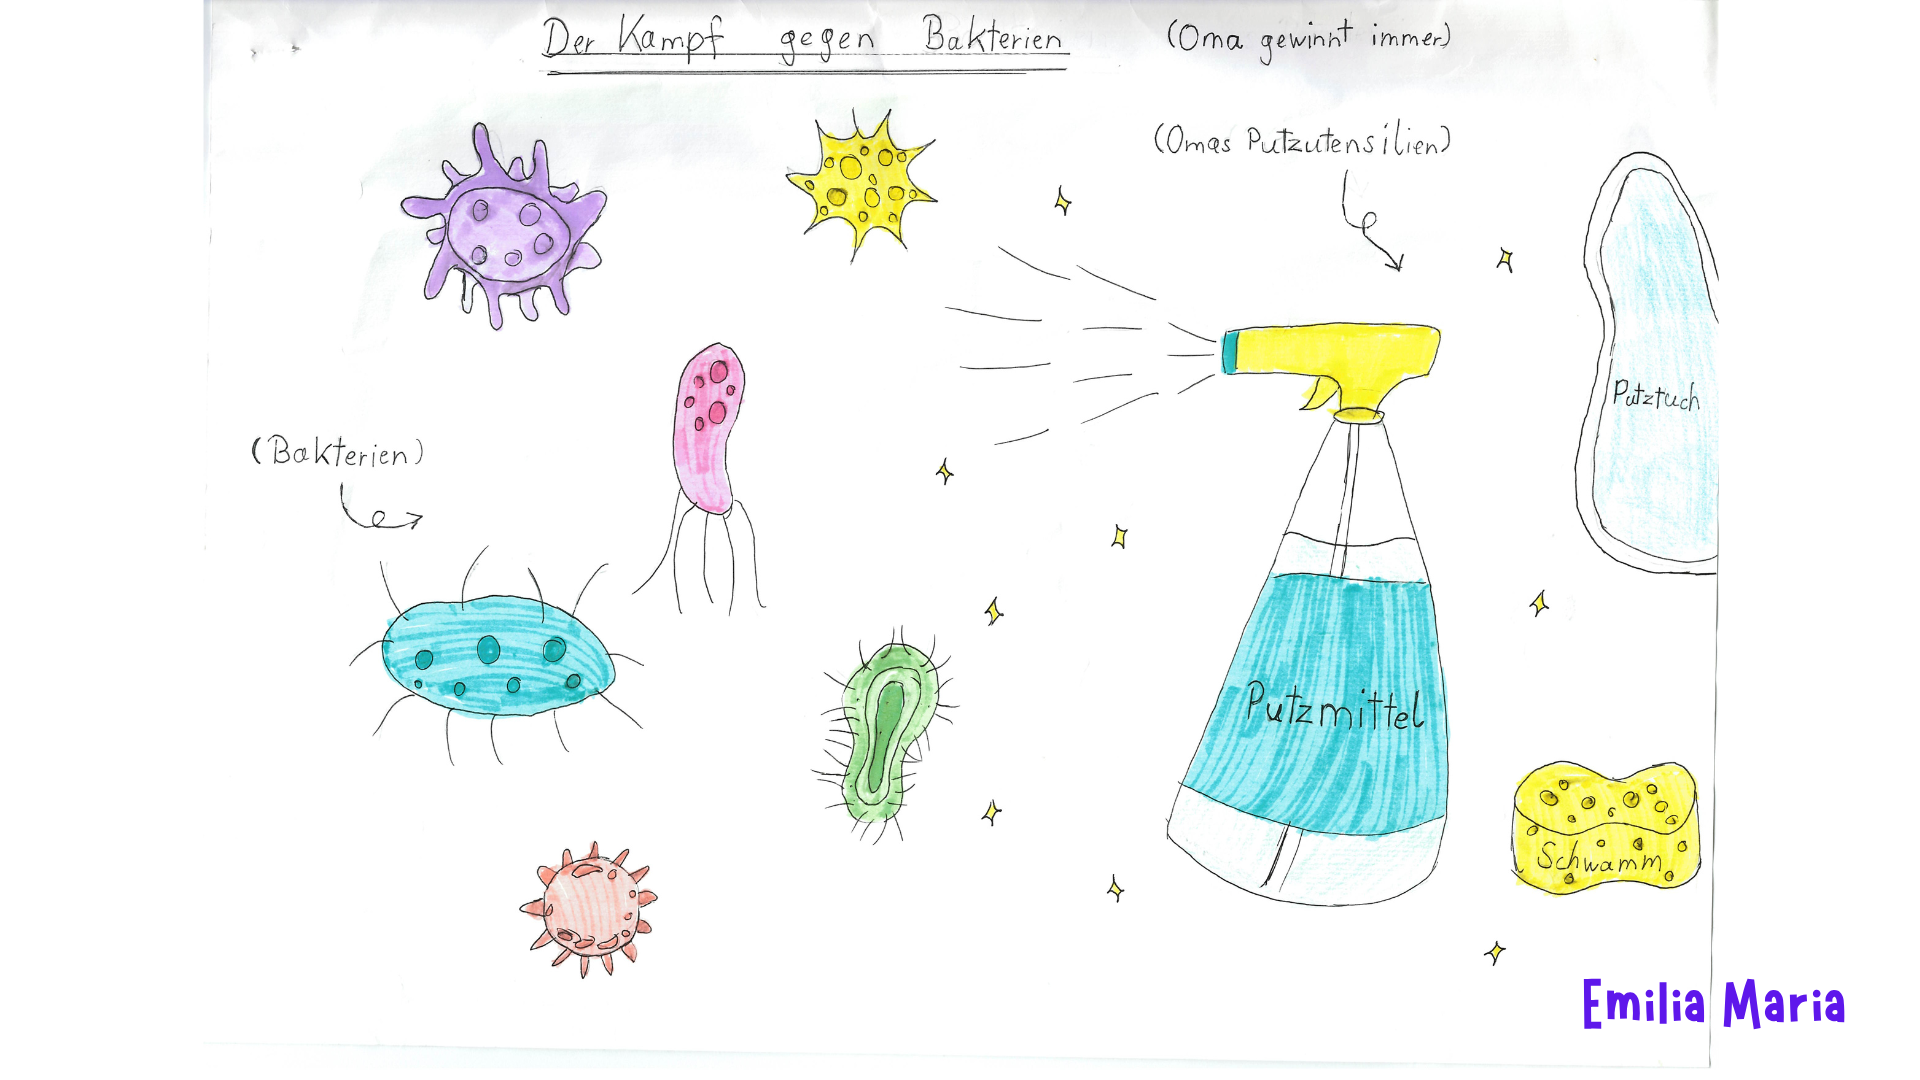 Der Kampf gegen Bakterien (Oma gewinnt immer)
(Omas Putzutensilien)
Putztuch
(Bakterien)
Putzmittel
Schwamm
Emilia Maria